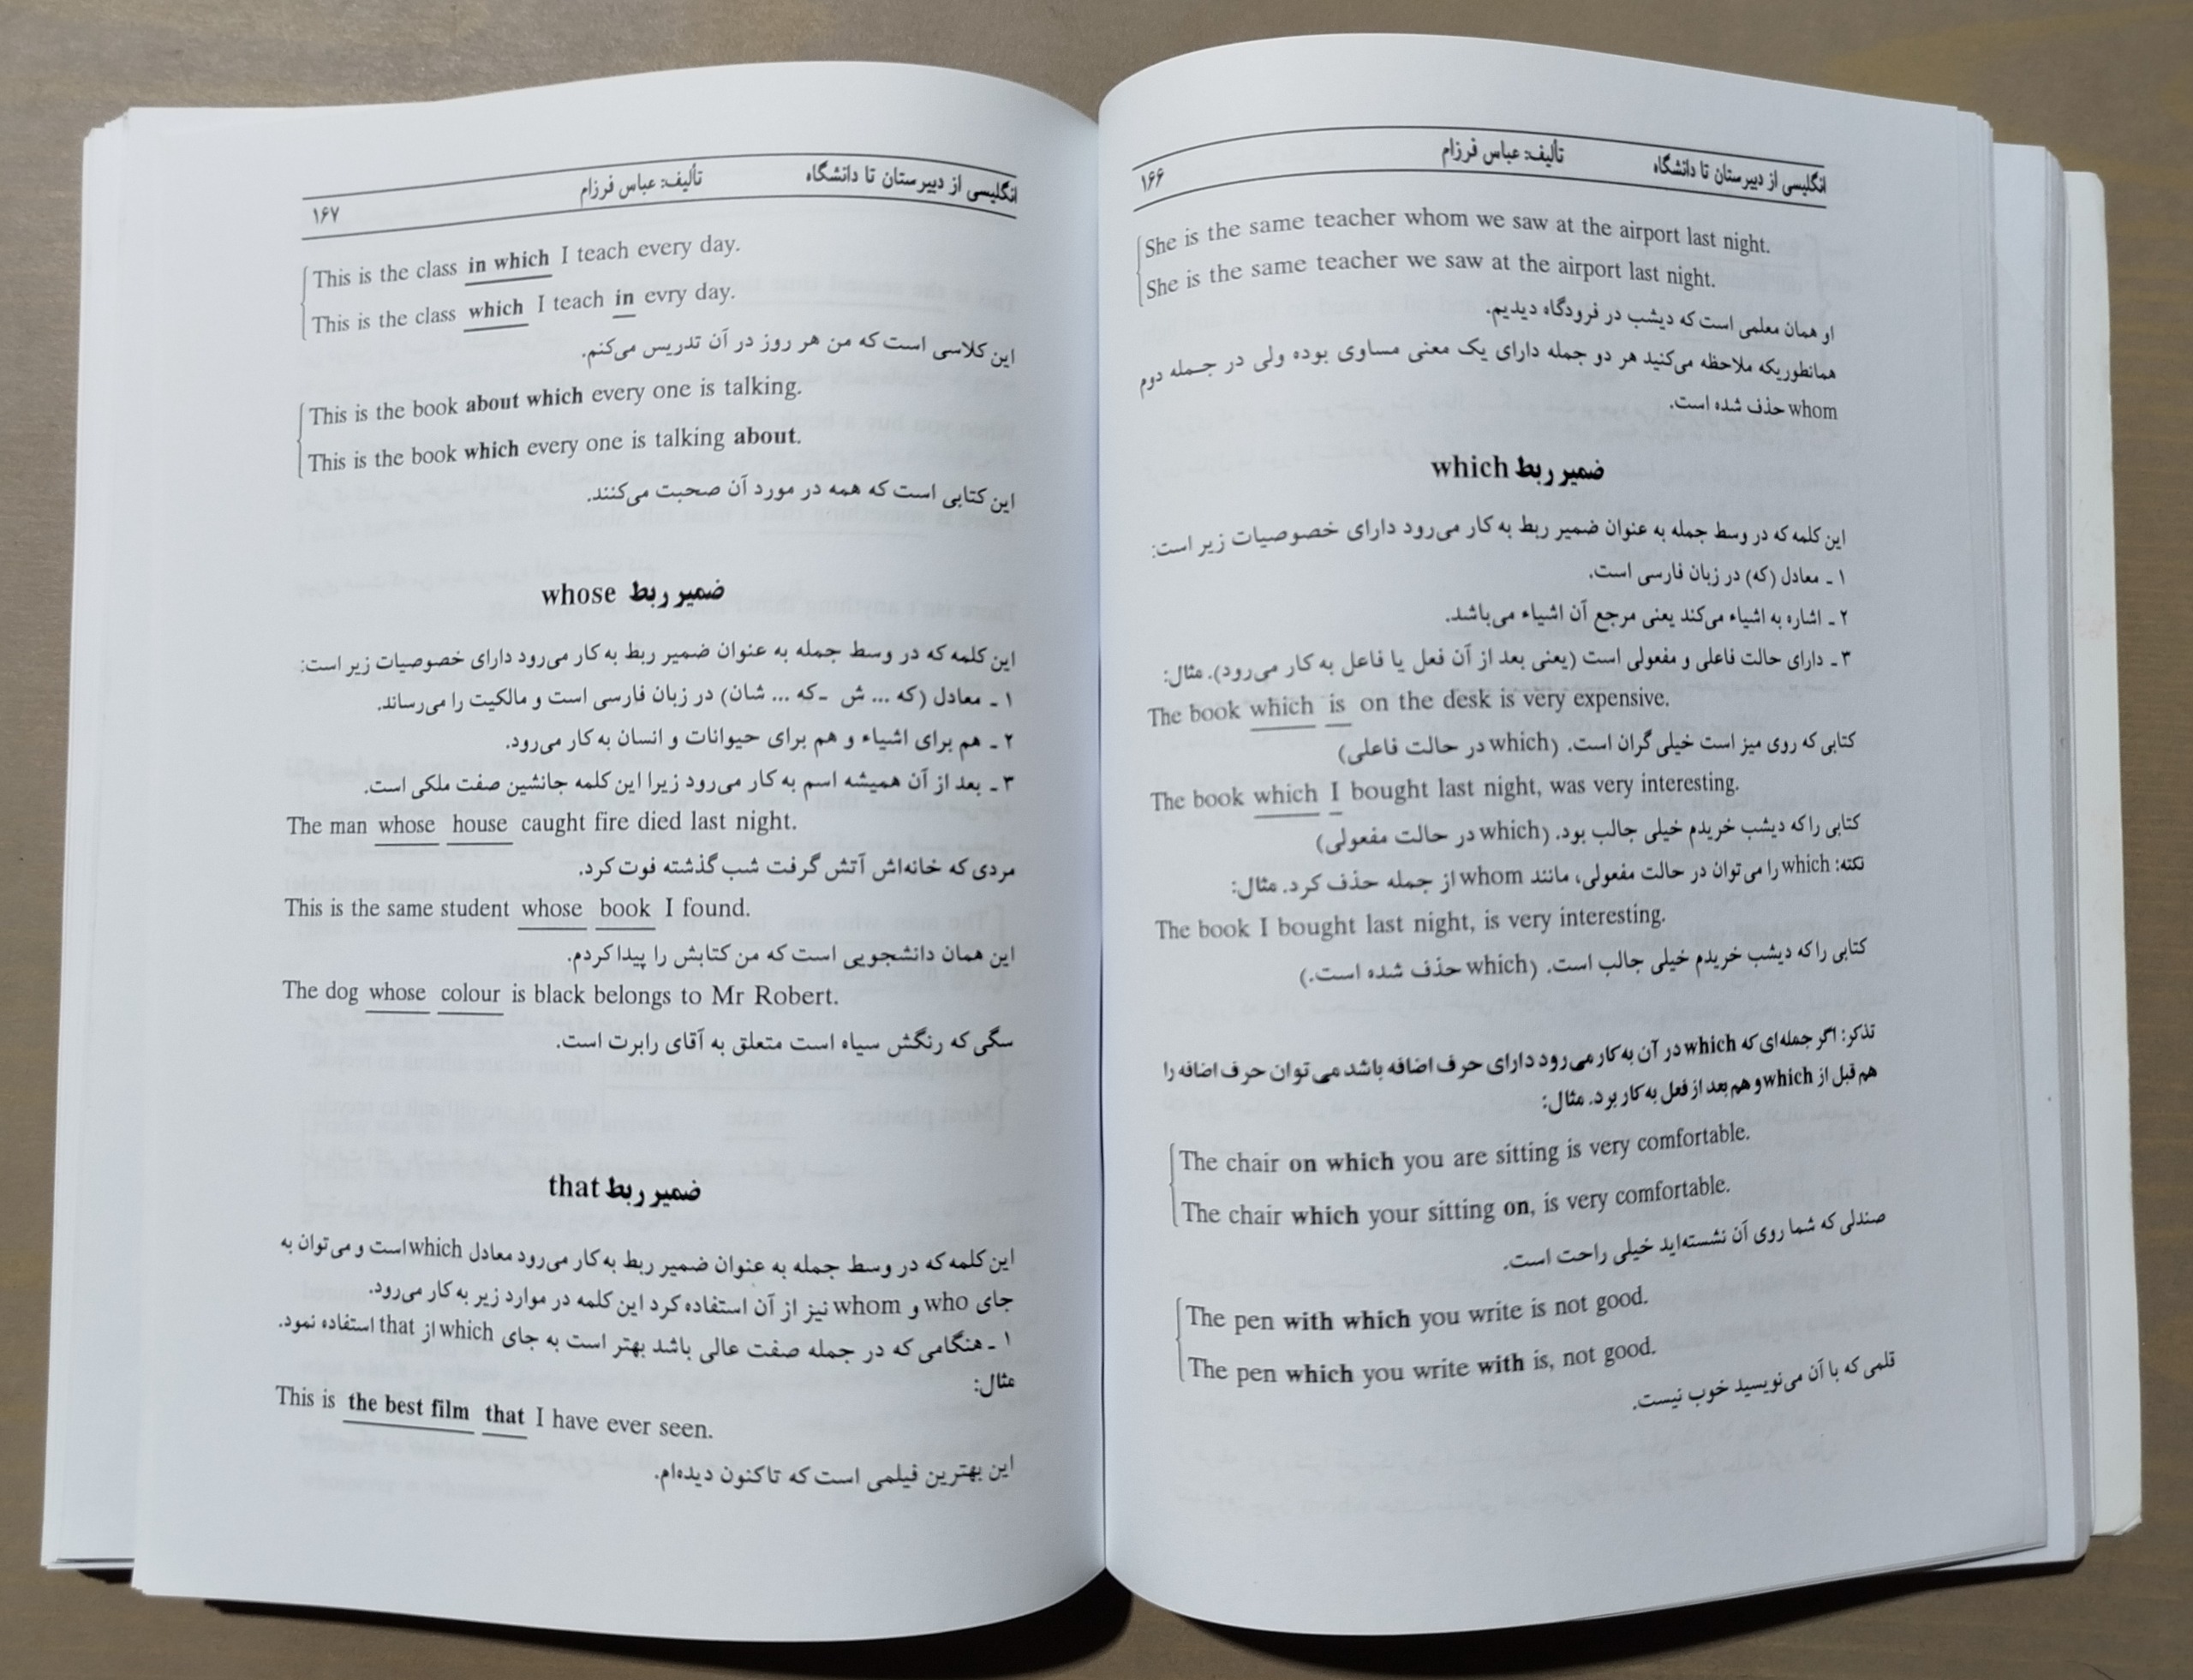 انگلیسی از دبیرستان تا دانشگاه تألیف: عباس فرزام ۱۶۶
She is the same teacher whom we saw at the airport last night.
She is the same teacher we saw at the airport last night.
او همان معلمی است که دیشب در فرودگاه دیدیم.
همانطوریکه ملاحظه می‌کنید هر دو جمله دارای یک معنی مساوی بوده ولی در جمله دوم
whom حذف شده است.
ضمیر ربط which
این کلمه که در وسط جمله به عنوان ضمیر ربط به کار می‌رود دارای خصوصیات زیر است:
۱ ـ معادل (که) در زبان فارسی است.
۲ ـ اشاره به اشیاء می‌کند یعنی مرجع آن اشیاء می‌باشد.
۳ ـ دارای حالت فاعلی و مفعولی است (یعنی بعد از آن فعل یا فاعل به کار می‌رود). مثال:
The book which is on the desk is very expensive.
کتابی که روی میز است خیلی گران است. (which در حالت فاعلی)
The book which I bought last night, was very interesting.
کتابی را که دیشب خریدم خیلی جالب بود. (which در حالت مفعولی)
نکته: which را می‌توان در حالت مفعولی، مانند whom از جمله حذف کرد. مثال:
The book I bought last night, is very interesting.
کتابی را که دیشب خریدم خیلی جالب است. (which حذف شده است.)
تذکر: اگر جمله‌ای که which در آن به کار می‌رود دارای حرف اضافه باشد می‌توان حرف اضافه را
هم قبل از which و هم بعد از فعل به کار برد. مثال:
The chair on which you are sitting is very comfortable.
The chair which your sitting on, is very comfortable.
صندلی که شما روی آن نشسته‌اید خیلی راحت است.
The pen with which you write is not good.
The pen which you write with is, not good.
قلمی که با آن می‌نویسید خوب نیست.
انگلیسی از دبیرستان تا دانشگاه تألیف: عباس فرزام ۱۶۷
This is the class in which I teach every day.
This is the class which I teach in evry day.
این کلاسی است که من هر روز در آن تدریس می‌کنم.
This is the book about which every one is talking.
This is the book which every one is talking about.
این کتابی است که همه در مورد آن صحبت می‌کنند.
ضمیر ربط whose
این کلمه که در وسط جمله به عنوان ضمیر ربط به کار می‌رود دارای خصوصیات زیر است:
۱ ـ معادل (که ... ش ـ که ... شان) در زبان فارسی است و مالکیت را می‌رساند.
۲ ـ هم برای اشیاء و هم برای حیوانات و انسان به کار می‌رود.
۳ ـ بعد از آن همیشه اسم به کار می‌رود زیرا این کلمه جانشین صفت ملکی است.
The man whose house caught fire died last night.
مردی که خانه‌اش آتش گرفت شب گذشته فوت کرد.
This is the same student whose book I found.
این همان دانشجویی است که من کتابش را پیدا کردم.
The dog whose colour is black belongs to Mr Robert.
سگی که رنگش سیاه است متعلق به آقای رابرت است.
ضمیر ربط that
این کلمه که در وسط جمله به عنوان ضمیر ربط به کار می‌رود معادل which است و می‌توان به
جای who و whom نیز از آن استفاده کرد این کلمه در موارد زیر به کار می‌رود.
۱ ـ هنگامی که در جمله صفت عالی باشد بهتر است به جای which از that استفاده نمود.
مثال:
This is the best film that I have ever seen.
این بهترین فیلمی است که تاکنون دیده‌ام.